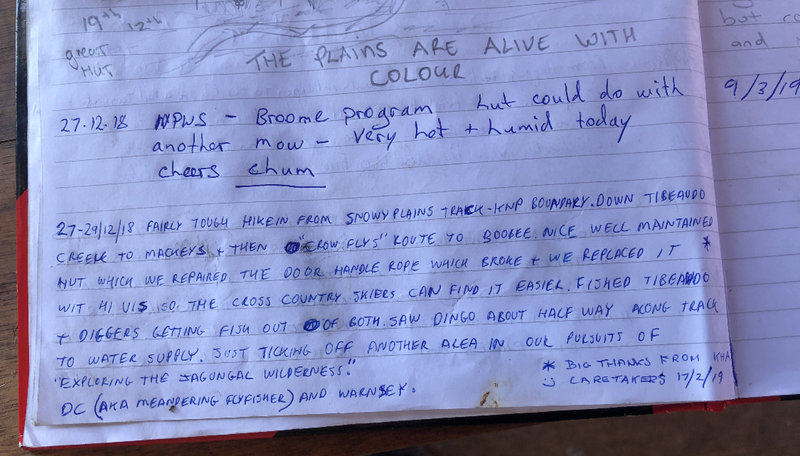 19th 12th
great
HUT
THE PLAINS ARE ALIVE WITH
COLOUR
27.12.18 NPWS - Broome program hut could do with
another mow - very hot + humid today
cheers chum
27-29/12/18 FAIRLY TOUGH HIKE IN FROM SNOWY PLAINS TRACK-KNP BOUNDARY. DOWN TIBEAUDO
CREEK TO MACKEYS + THEN "CROW FLYS" ROUTE TO BOOBEE. NICE WELL MAINTAINED
HUT WHICH WE REPAIRED THE DOOR HANDLE ROPE WHICH BROKE + WE REPLACED IT *
WIT HI VIS SO THE CROSS COUNTRY SKIERS CAN FIND IT EASIER. FISHED TIBEAUDO
+ DIGGERS GETTING FISH OUT OF BOTH. SAW DINGO ABOUT HALF WAY ALONG TRACK
TO WATER SUPPLY. JUST TICKING OFF ANOTHER AREA IN OUR PURSUITS OF
"EXPLORING THE JAGUNGAL WILDERNESS."
DC (AKA MEANDERING FLYFISHER) AND WARNSEY.
* BIG THANKS FROM KHA
CARETAKERS 17/2/19
but
and
9/3/19